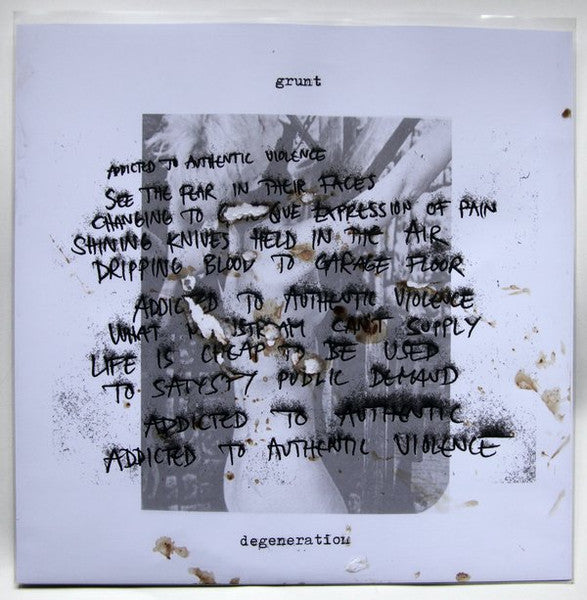 grunt
ADDICTED TO AUTHENTIC VIOLENCE
SEE THE FEAR IN THEIR FACES
CHANGING TO QUE EXPRESSION OF PAIN
SHINING KNIVES HELD IN THE AIR
DRIPPING BLOOD TO GARAGE FLOOR
ADDICTED TO AUTHENTIC VIOLENCE
WHAT CAN'T SUPPLY
LIFE IS CHEAP TO BE USED
TO SATYSTY PUBLIC DEMAND
ADDICTED TO AUTHENTIC
ADDICTED TO AUTHENTIC VIOLENCE
degeneration